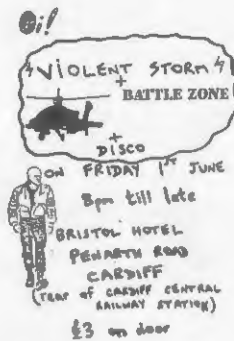 Oi!
VIOLENT STORM
+
BATTLE ZONE
+
DISCO
ON FRIDAY 1ST JUNE
8pm till late
BRISTOL HOTEL
PENARTH ROAD
CARDIFF
(rear of CARDIFF CENTRAL
RAILWAY STATION)
£3 on door